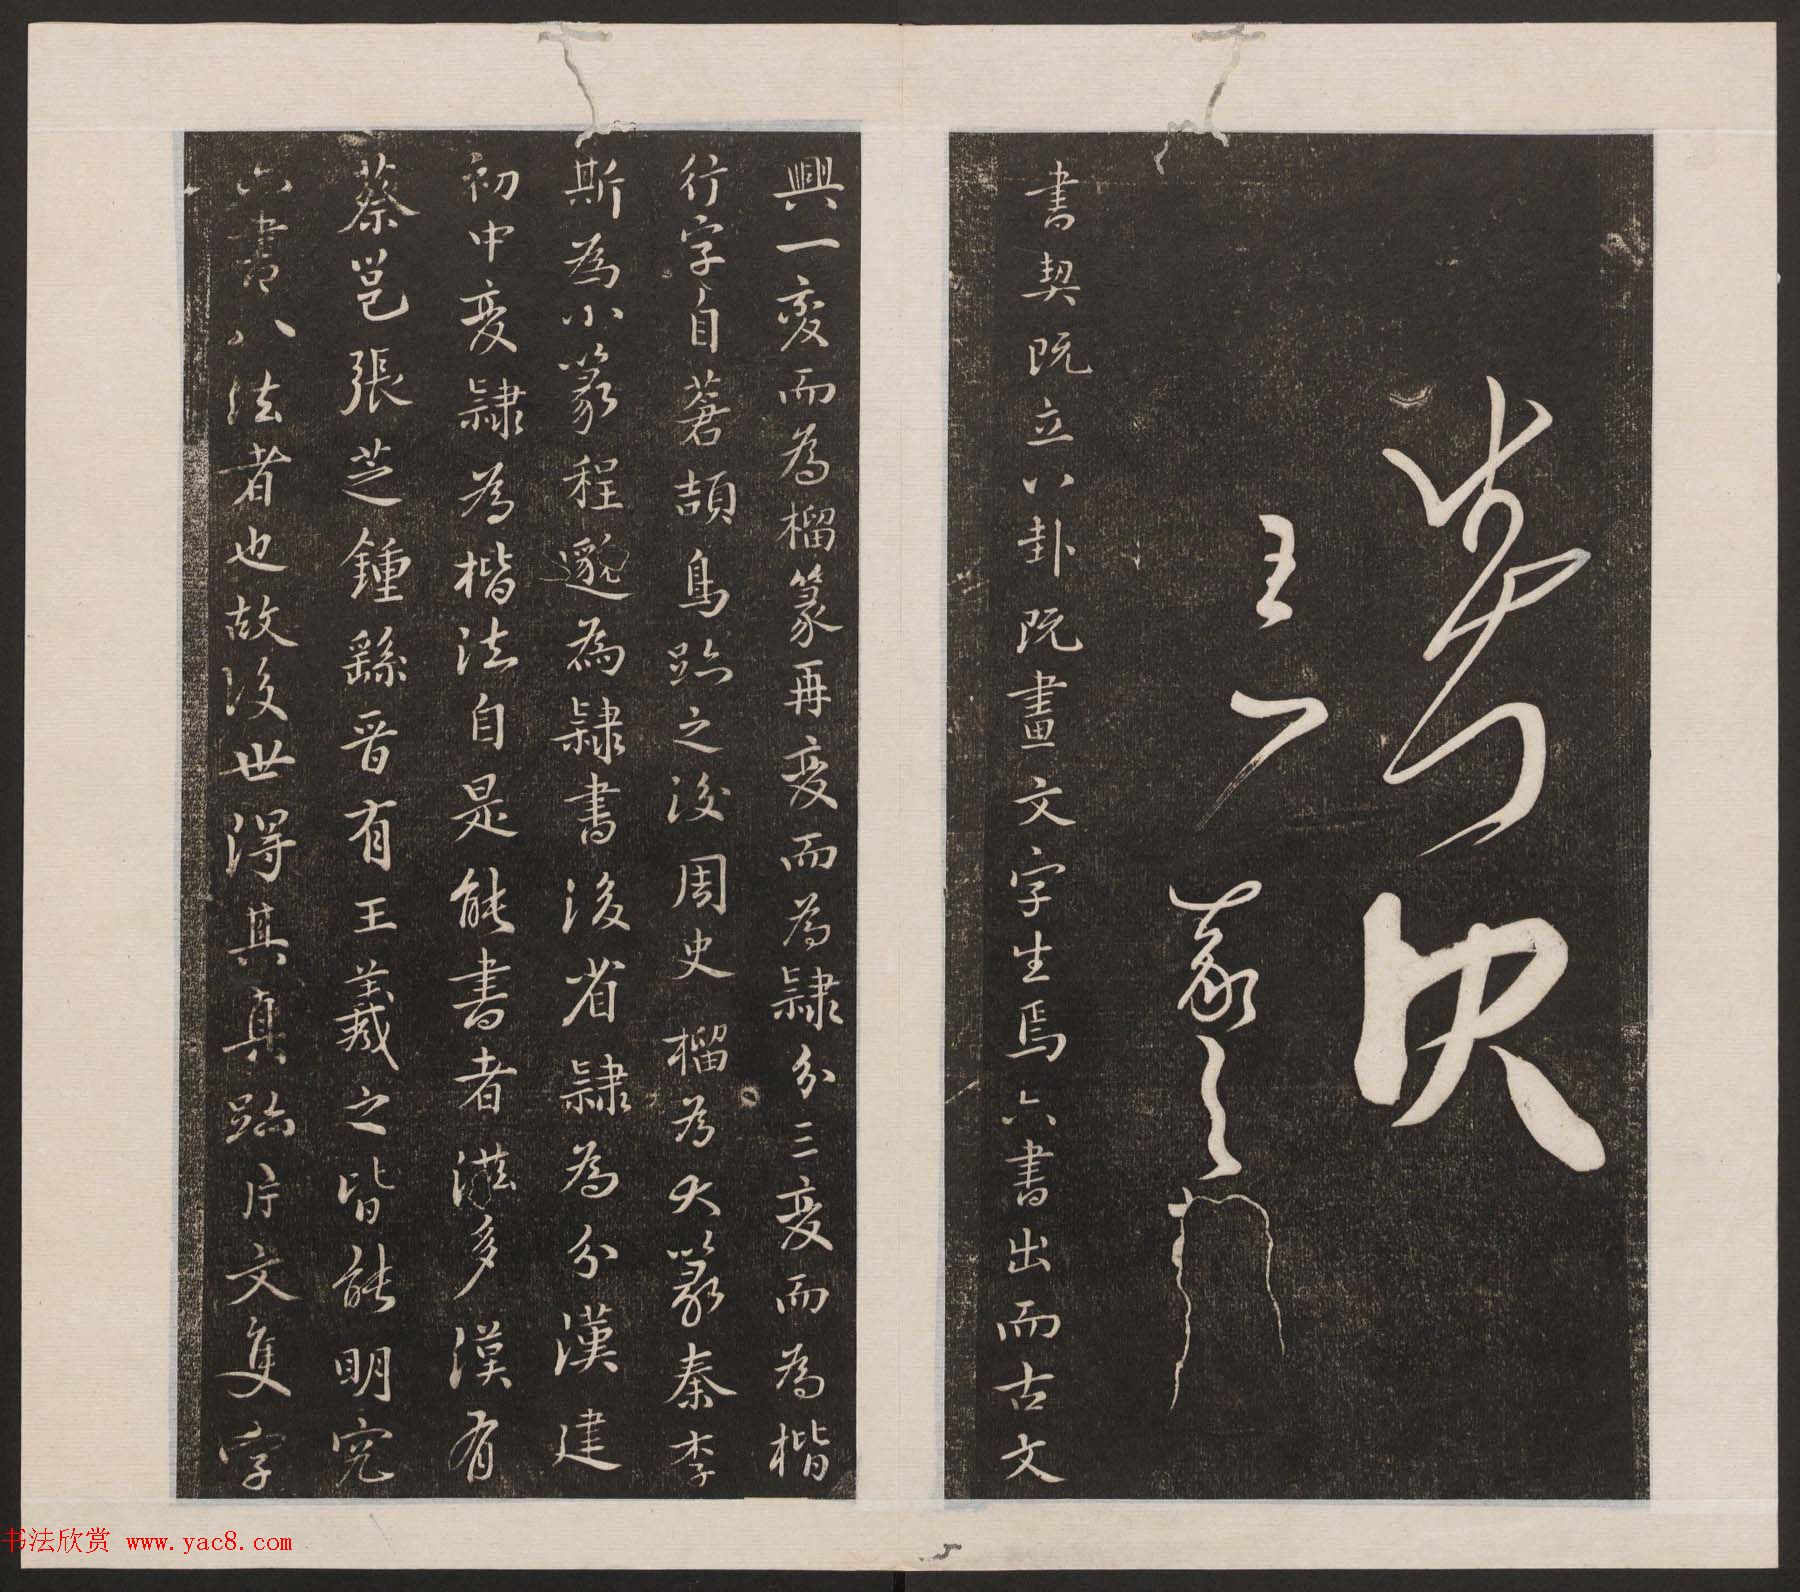 王羲之
書契既立八卦既畫文字生焉六書出而古文
興一変而為榴篆再変而為隸分三変而為楷
行字自蒼頡鳥跡之後周史榴為大篆秦李
斯為小篆程邈為隸書後省隸為分漢建
初中変隸為楷法自是能書者滋多漢有
蔡邕張芝鍾繇晉有王羲之皆能明究
六書八法者也故後世得其真跡片文隻字
书法欣赏 www.yac8.com